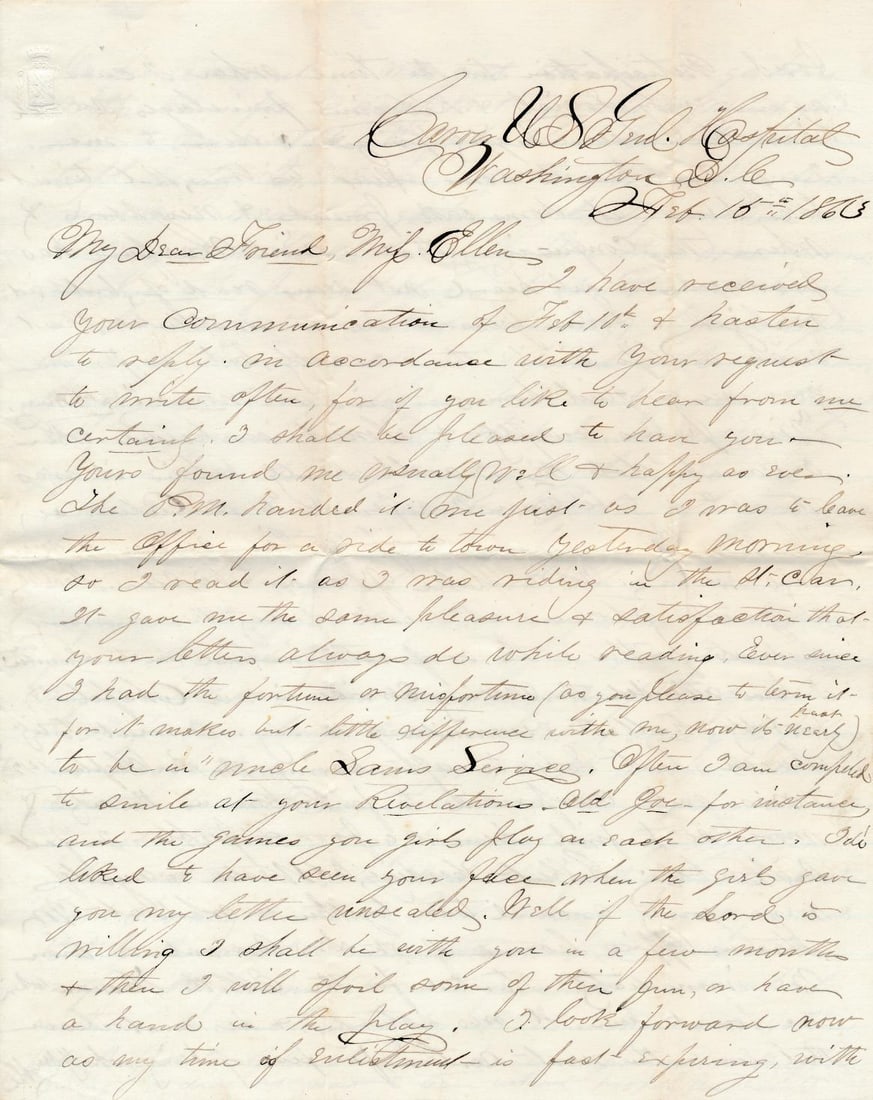 Carver U S Genl. Hospital
Washington D. C
Feb. 15th 1863
My Dear Friend, Miss. Ellen
I have received
your Communication of Feb 10th & hasten
to reply. in accordance with your request
to write often, for if you like to hear from me
certainly. I shall be pleased to have you
Yours found me usually well & happy as ever.
The P.M. handed it me just as I was to leave
the Office for a ride to town yesterday morning,
so I read it as I was riding in the st. car.
It gave me the same pleasure & satisfaction that
your letters always do while reading. Ever since
I had the fortune or misfortune (as you please to term it
for it makes but little difference withe me, now its nearly)
to be in "uncle Sams Service. Often I am compeled
to smile at your Revelations Old Joe for instance,
and the games you girls play on each other. I'de
liked to have seen your face when the girls gave
you my letter unsealed. Well if the Lord is
willing I shall be with you in a few months
& then I will spoil some of their fun, or have
a hand in the play. I look forward now
as my time of enlistment is fast expiring, with